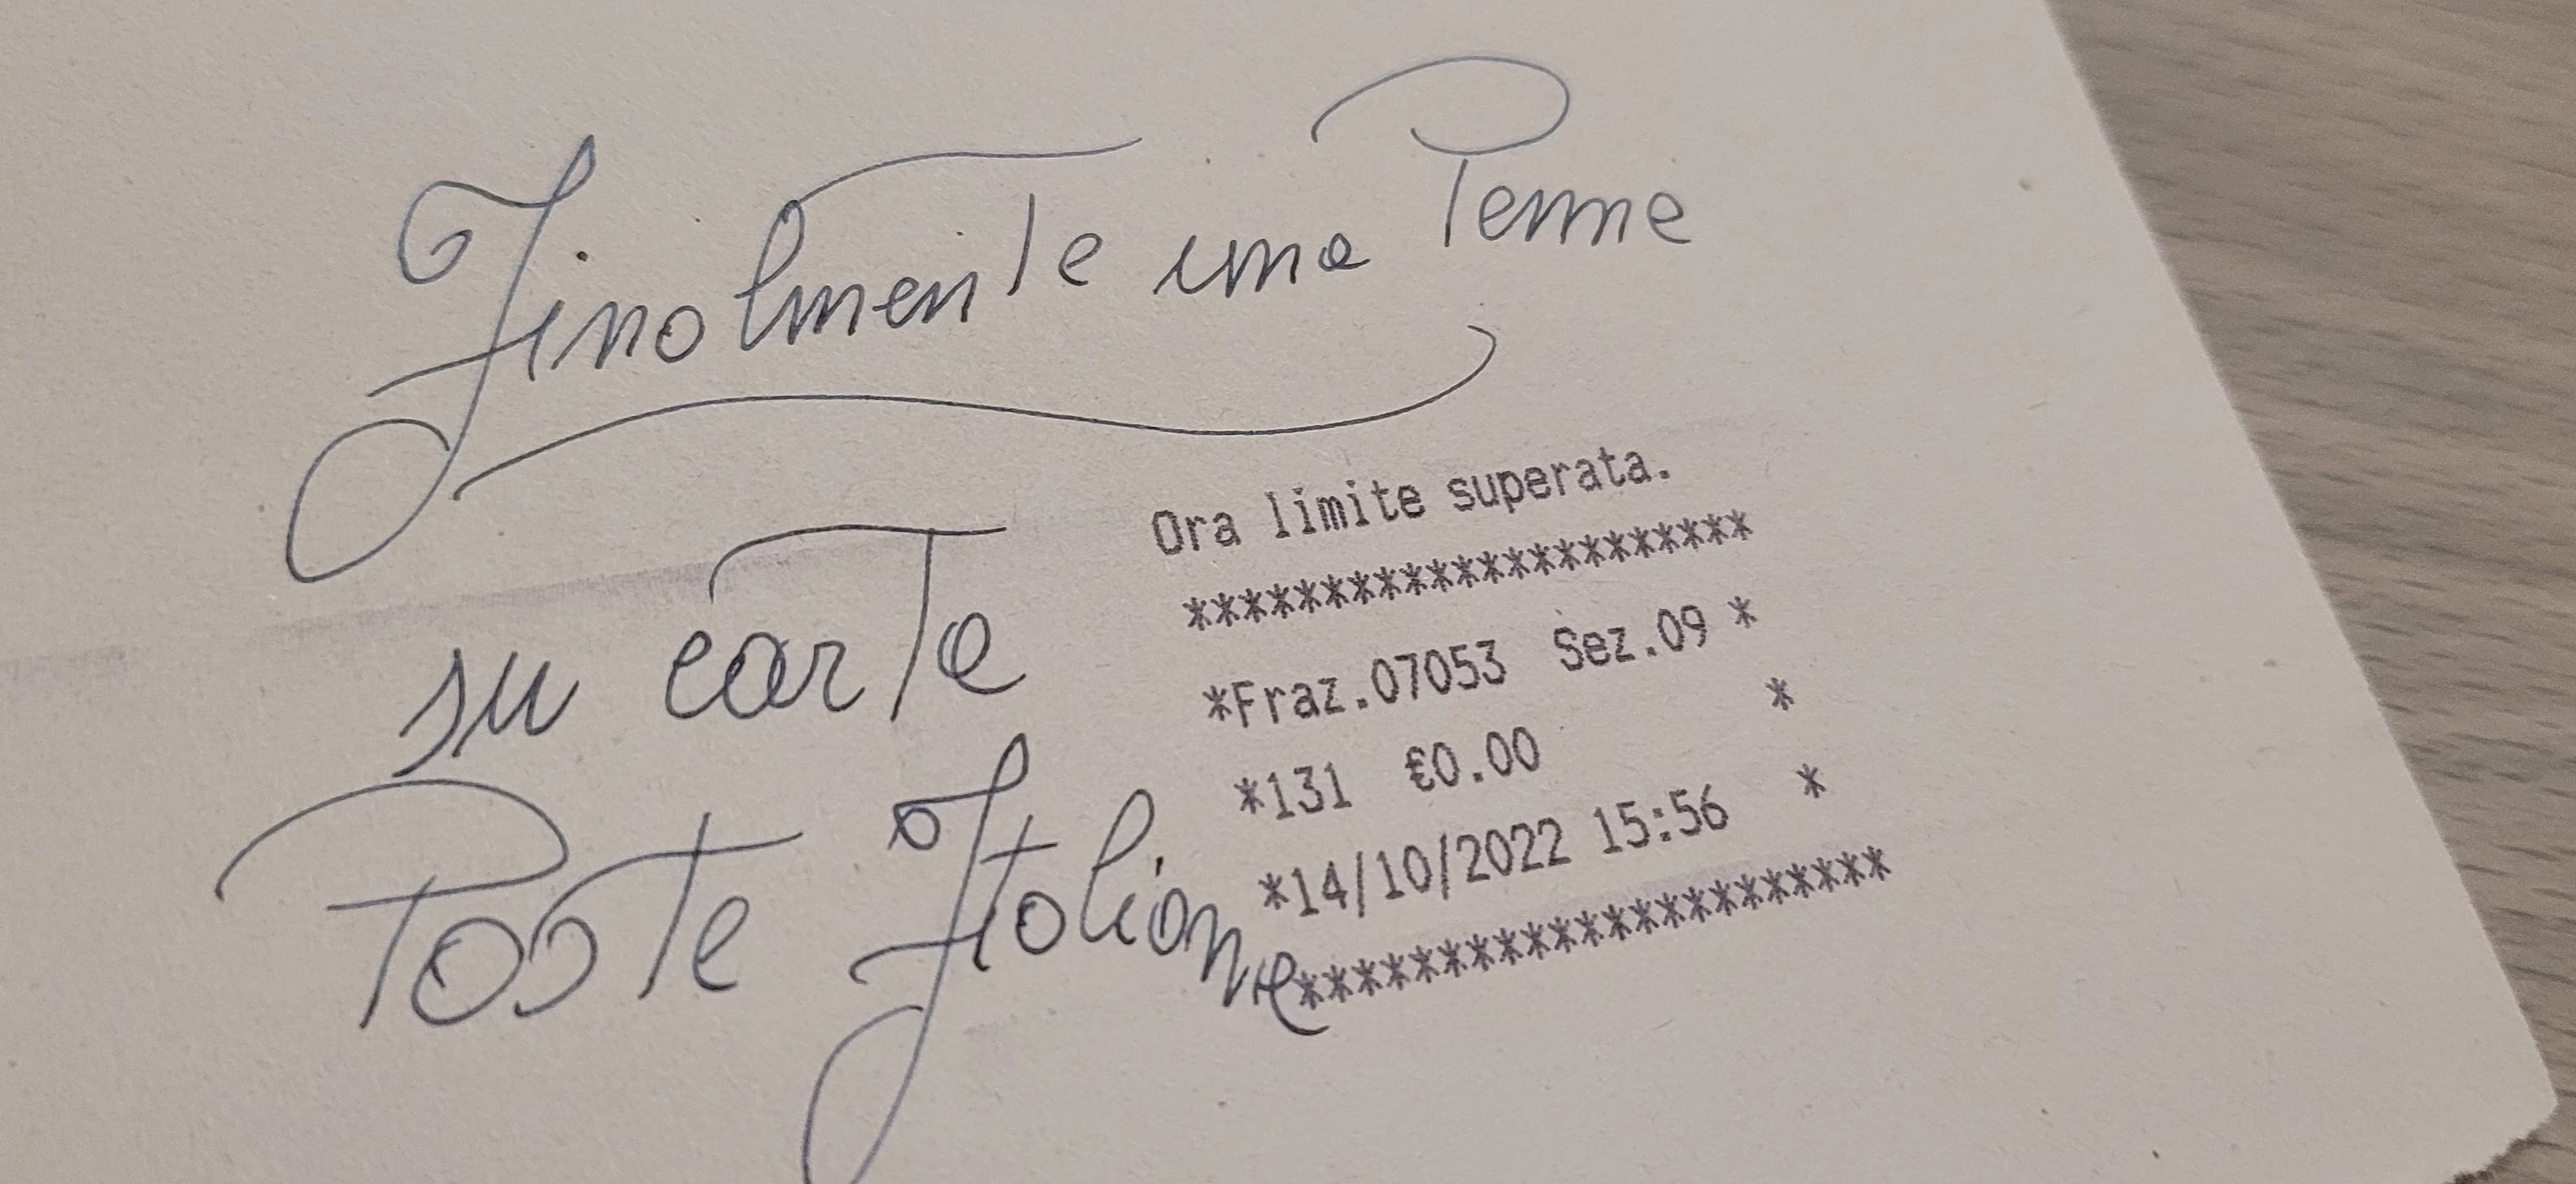 Finalmente una Penna
su carta
Poste Italiane
Ora limite superata.
********************
*Fraz.07053 Sez.09 *
*131 €0.00 *
*14/10/2022 15:56 *
*********************